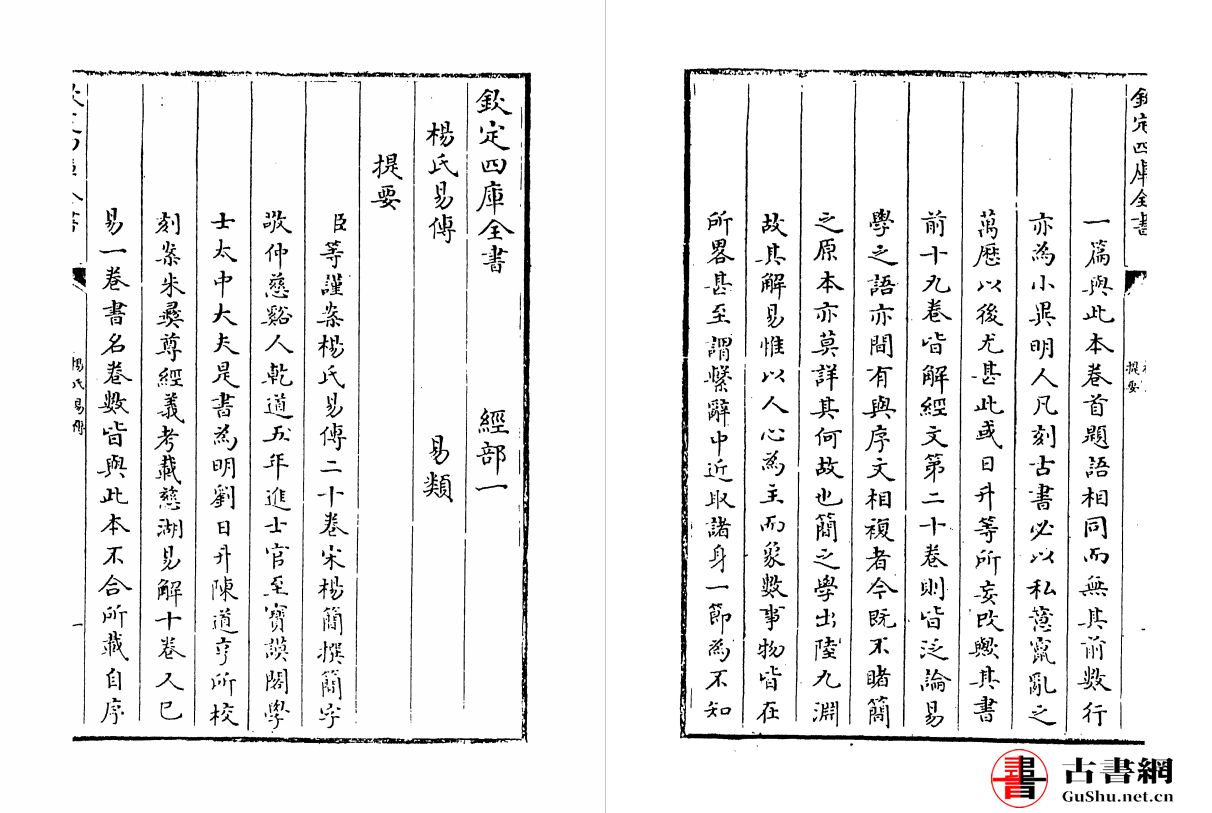 欽定四庫全書 經部一
楊氏易傳 易類
提要
臣等謹案楊氏易傳二十卷宋楊簡撰簡字
敬仲慈谿人乾道五年進士官至寶謨閣學
士太中大夫是書為明劉日升陳道亨所校
刻案朱彛尊經義考載慈湖易解十卷又已
易一卷書名卷數皆與此本不合所載自序
楊氏易傳
一
欽定四庫全書
提要
一篇與此本卷首題語相同而無其前數行
亦為小異明人凡刻古書必以私意竄亂之
萬歷以後尤甚此或日升等所妄改歟其書
前十九卷皆解經文第二十卷則皆泛論易
學之語亦間有與序文相複者今既不睹簡
之原本亦莫詳其何故也簡之學出陸九淵
故其解易惟以人心為主而象數事物皆在
所畧甚至謂繫辭中近取諸身一節為不知
書
古書網
GuShu.net.cn